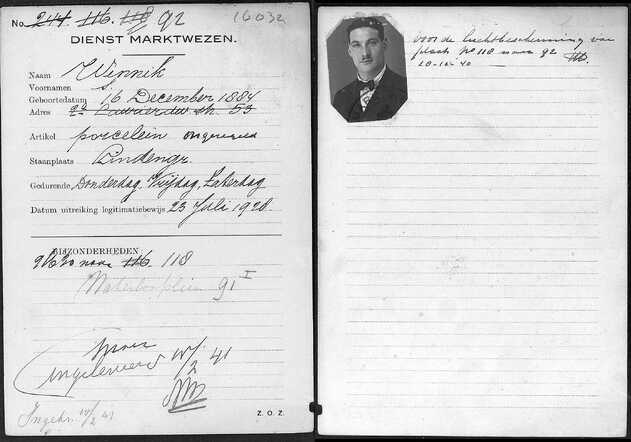 No. 214. 116. 118 92 16032
DIENST MARKTWEZEN.
Naam Winnik
Voornamen S.
Geboortedatum 16 December 1884
Adres st. 53
Artikel porcelein ongeregeld
Staanplaats Lindengr.
Gedurende, Donderdag, Vrijdag, Zaterdag
Datum uitreiking legitimatiebewijs 23 Juli 1928.
BIJZONDERHEDEN
naar 116. 118
Waterlooplein 91 I
ingeleverd 10/2 41
Ingek. 10/2 41
Z. O. Z.
voor de luchtbescherming van
plaats No 118 naar 92
28-10-40